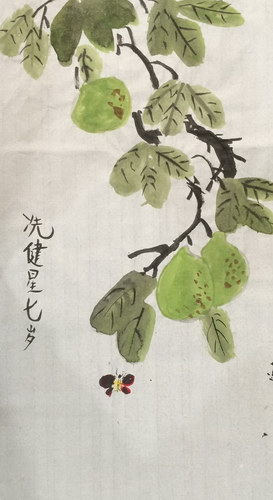 冼健星七岁